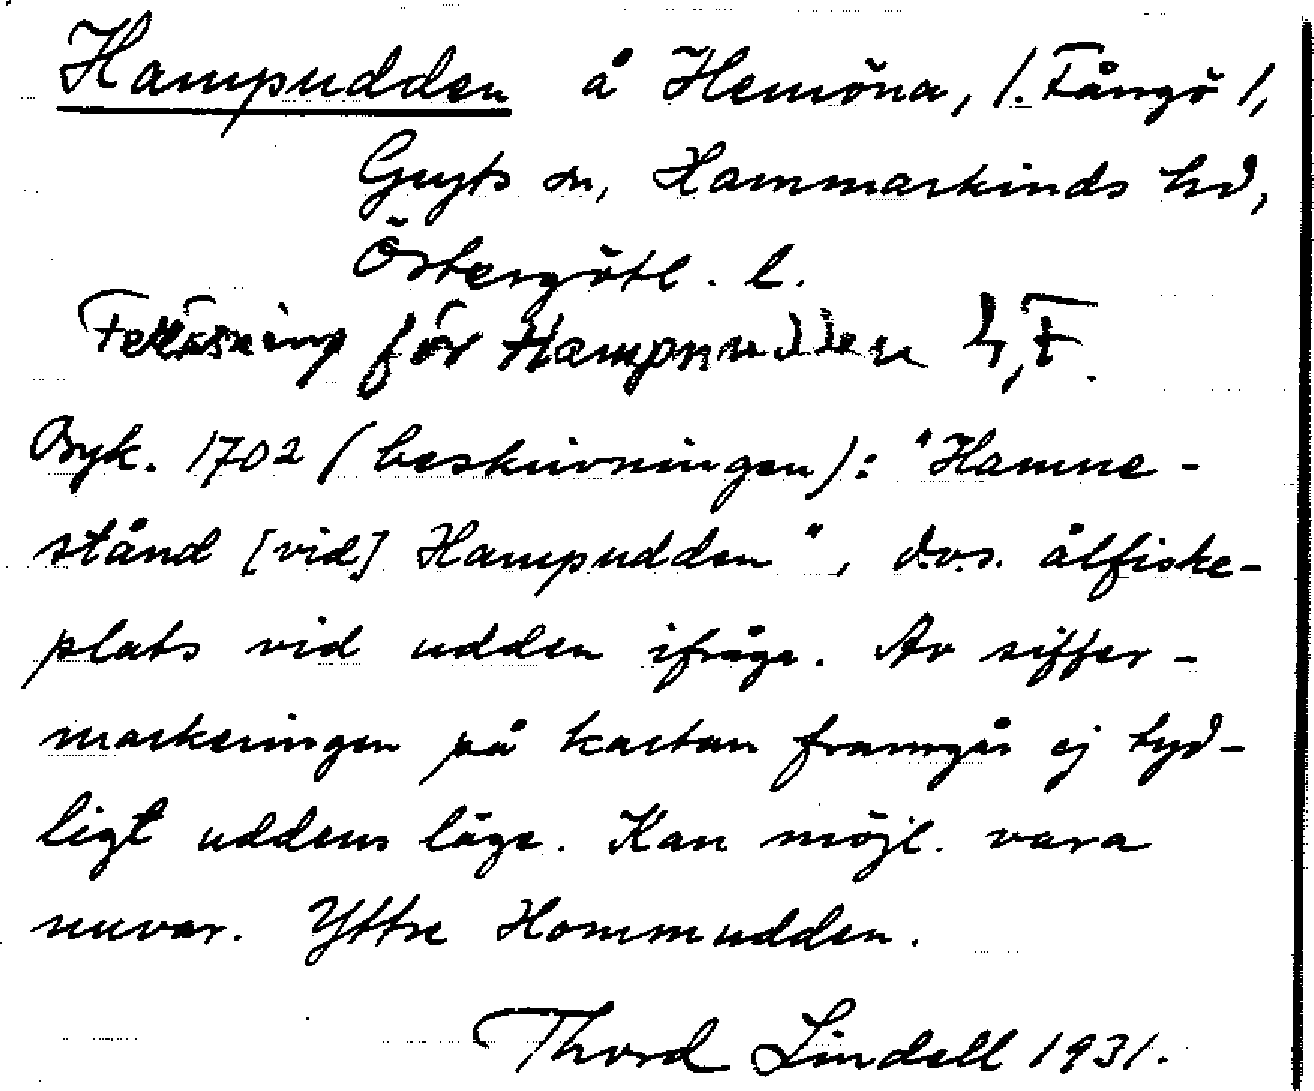 Hampudden å Hemöna, /. Fångö /,
Gryts sn, Hammarkinds hd,
Östergötl. l.
Felläsning för Hampnudden
Ryk. 1702 (beskrivningen): "Hamne-
stånd [vid] Hampudden", d.v.s. ålfiske-
plats vid udden ifråga. Av siffer-
markeringen på kartan framgår ej tyd-
ligt uddens läge. Kan möjl. vara
nuvar. Yttre Hommudden.
Thord Lindell 1931.